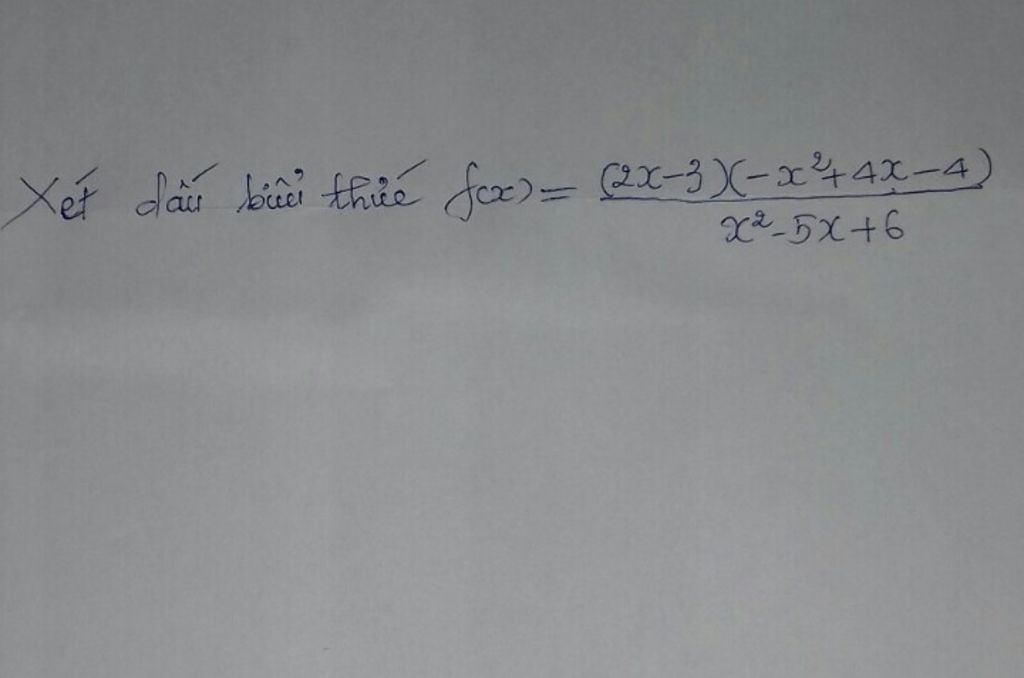 Xét dấu biểu thức f(x) = (2x-3)(-x²+4x-4)
x²-5x+6